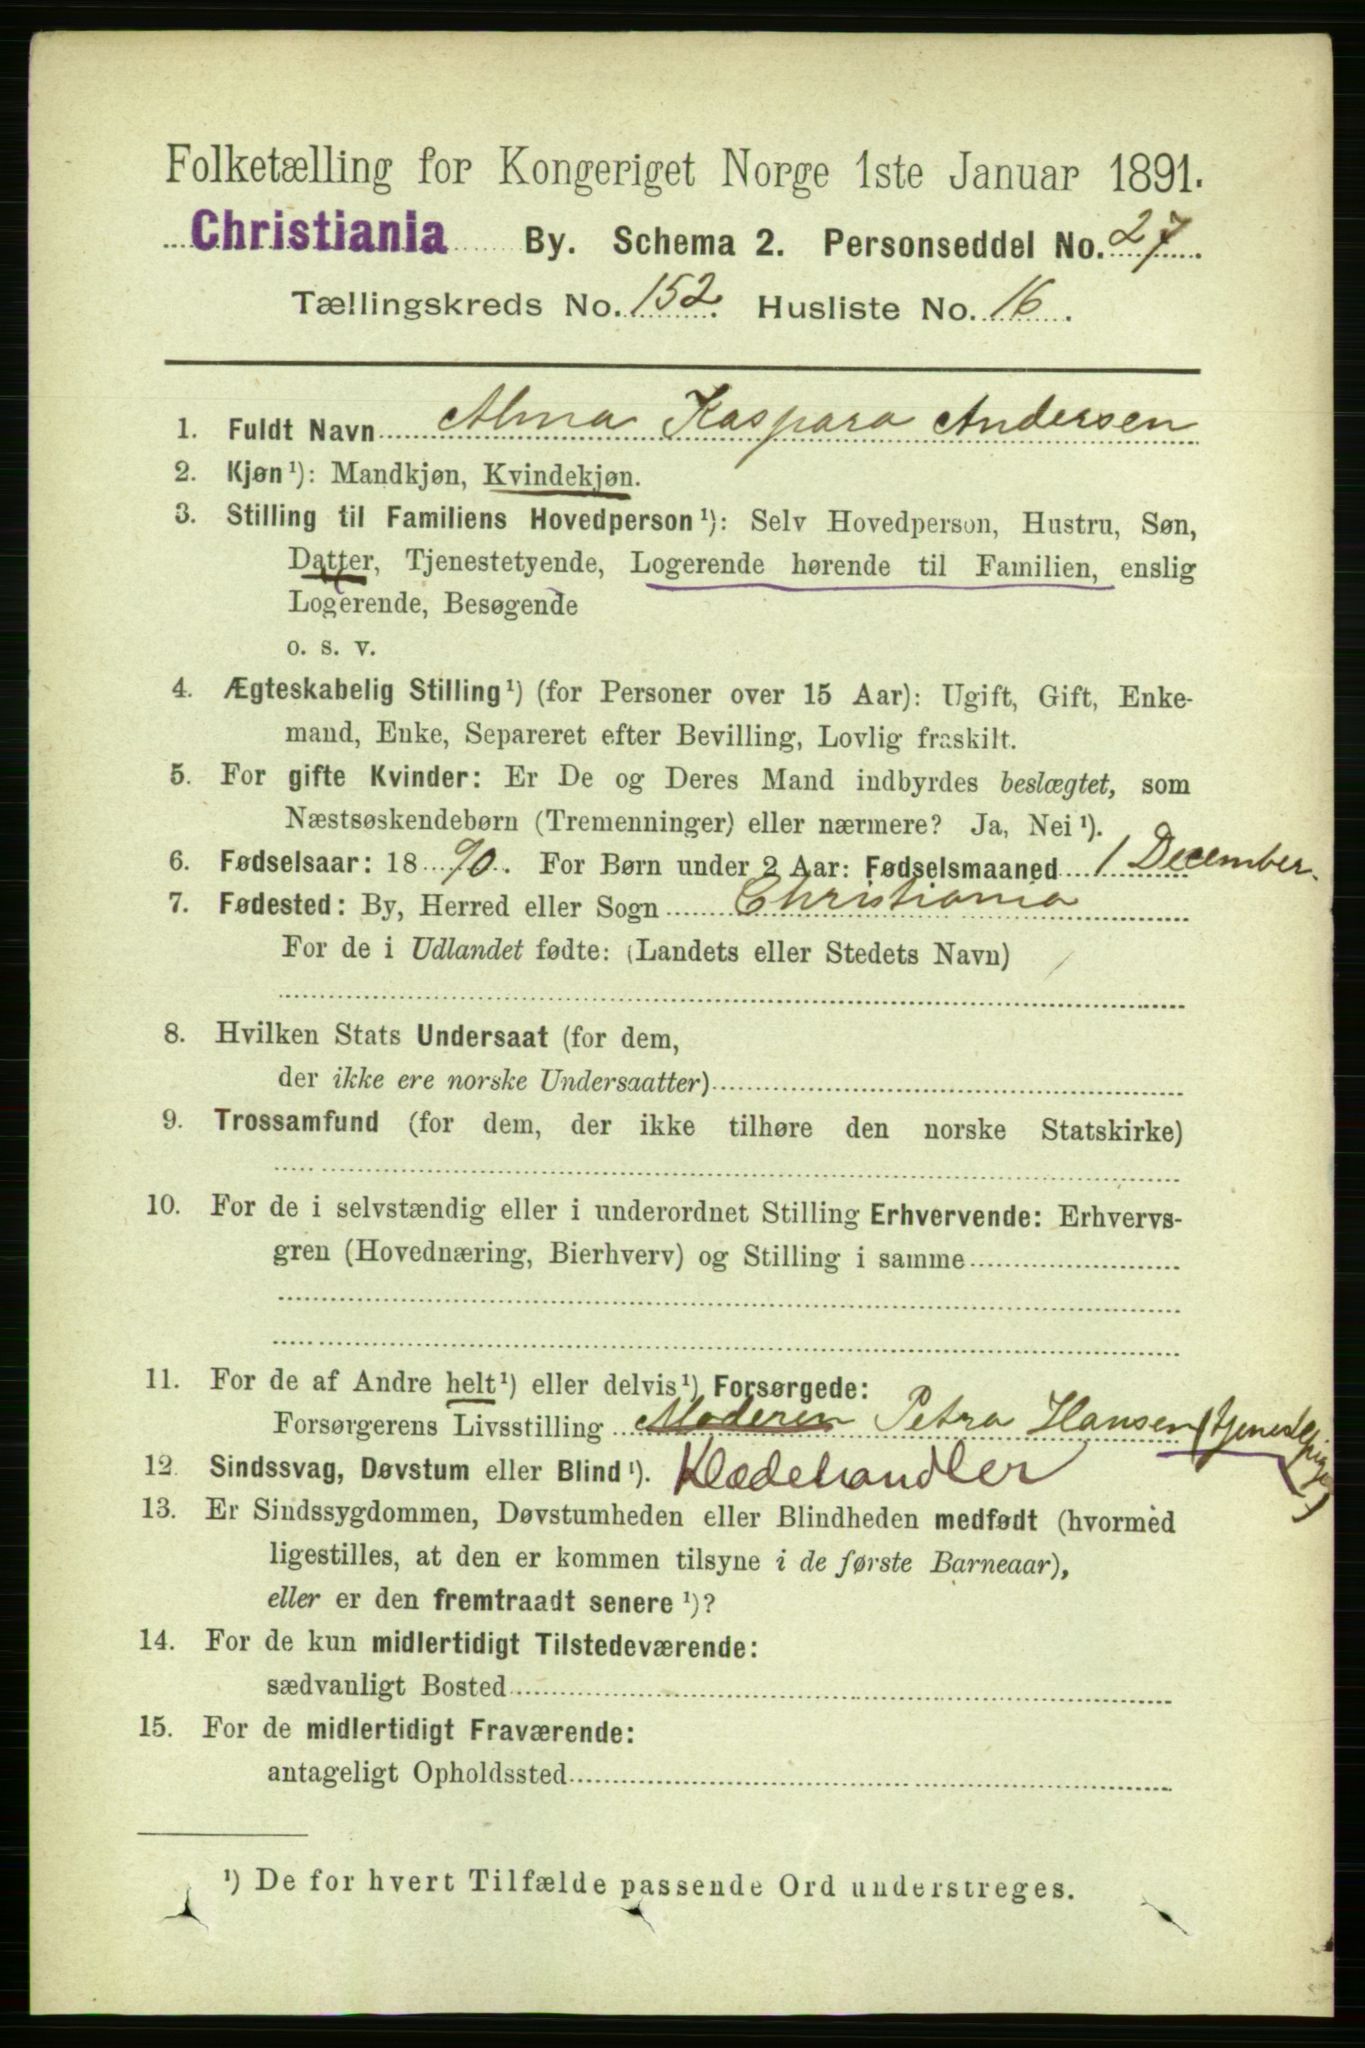 Folketælling for Kongeriget Norge 1ste Januar 1891.
Christiania By. Schema 2. Personseddel No. 27.
Tællingskreds No. 152. Husliste No. 16.
1. Fuldt Navn Alma Kaspara Andersen
2. Kjøn¹): Mandkjøn, Kvindekjøn.
3. Stilling til Familiens Hovedperson¹): Selv Hovedperson, Hustru, Søn,
Datter, Tjenestetyende, Logerende hørende til Familien, enslig
Logerende, Besøgende
o. s. v.
4. Ægteskabelig Stilling¹) (for Personer over 15 Aar): Ugift, Gift, Enke-
mand, Enke, Separeret efter Bevilling, Lovlig fraskilt.
5. For gifte Kvinder: Er De og Deres Mand indbyrdes beslægtet, som
Næstsøskendebørn (Tremenninger) eller nærmere? Ja, Nei¹).
6. Fødselsaar: 1890. For Børn under 2 Aar: Fødselsmaaned 1 December.
7. Fødested: By, Herred eller Sogn Christiania
For de i Udlandet fødte: (Landets eller Stedets Navn)
8. Hvilken Stats Undersaat (for dem,
der ikke ere norske Undersaatter)
9. Trossamfund (for dem, der ikke tilhøre den norske Statskirke)
10. For de i selvstændig eller i underordnet Stilling Erhvervende: Erhvervs-
gren (Hovednæring, Bierhverv) og Stilling i samme
11. For de af Andre helt¹) eller delvis¹) Forsørgede:
Forsørgerens Livsstilling Moderen Petra Hansen (tjenestepige)
12. Sindssvag, Døvstum eller Blind¹). Klædehandler
13. Er Sindssygdommen, Døvstumheden eller Blindheden medfødt (hvormed
ligestilles, at den er kommen tilsyne i de første Barneaar),
eller er den fremtraadt senere¹)?
14. For de kun midlertidigt Tilstedeværende:
sædvanligt Bosted
15. For de midlertidigt Fraværende:
antageligt Opholdssted
¹) De for hvert Tilfælde passende Ord understreges.